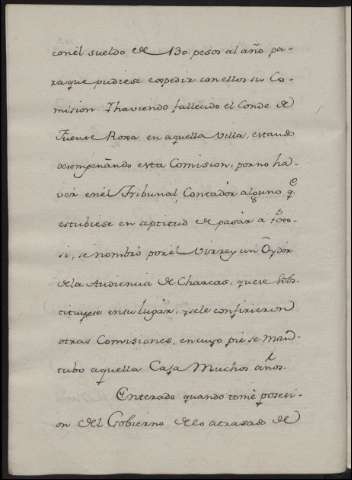 con el sueldo de 130 pesos al año pa-
ra que pudiese expedir con ellos su Co-
mision. Y haviendo fallecido el Conde de
Fuente Roxa en aquella Villa, estando
desempeñando esta Comision, por no ha-
ver en el Tribunal, Contador alguno q.e
estubiese en aptitud de pasar a Poto-
si, se nombró por el Virrey un Oydor
de la Audiencia de Charcas, que se sobs-
tituyese en su lugar, y se le confirieron
otras Comisiones, en cuyo pie se man-
tubo aquella Caja Muchos años.
Enterado quando tomé posesi-
on del Gobierno de lo atrasado de